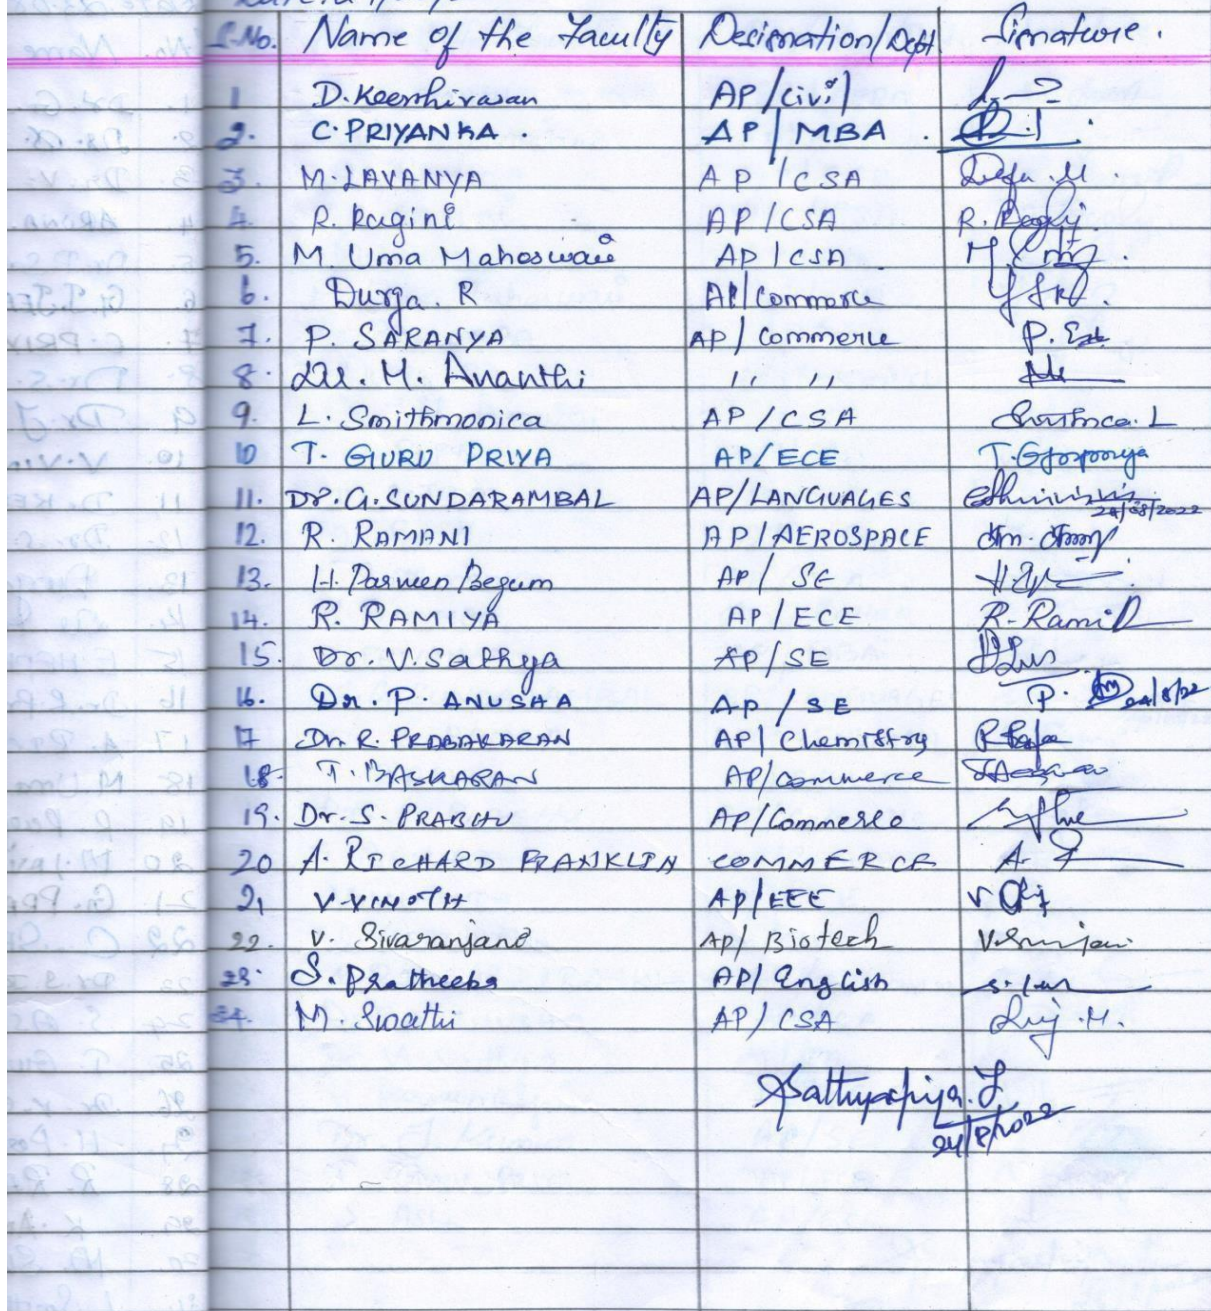 S.No. Name of the Faculty Designation/Dept Signature.
1 D. Keerthivasan AP/Civil
2. C. PRIYANKA. AP/MBA.
3. M. LAVANYA AP/CSA
4. R. Ragini AP/CSA
5. M. Uma Maheswari AP/CSA
6. Durga. R AP/Commerce
7. P. SARANYA AP/Commerce P.
8. Dr. M. Ananthi ,, ,,
9. L. Smithmonica AP/CSA
10 T. GURU PRIYA AP/ECE
11. Dr. G. SUNDARAMBAL AP/LANGUAGES 24/08/2022
12. R. RAMANI AP/AEROSPACE
13. H. Parveen Begum AP/SE
14. R. RAMIYA AP/ECE
15. Dr. V. Sathya AP/SE
16. Dr. P. ANUSHA AP/SE P. 24/8/22
17 Dr. R. PRABAKARAN AP/Chemistry
18. T. BASKARAN AP/Commerce
19. Dr. S. PRABHU AP/Commerce
20 A. RICHARD FRANKLIN COMMERCE A.
21 V. VINOTH AP/EEE V
22. V. Sivaranjani AP/Biotech
23. S. Pratheeba AP/English
24. M. Swathi AP/CSA
24/8/2022